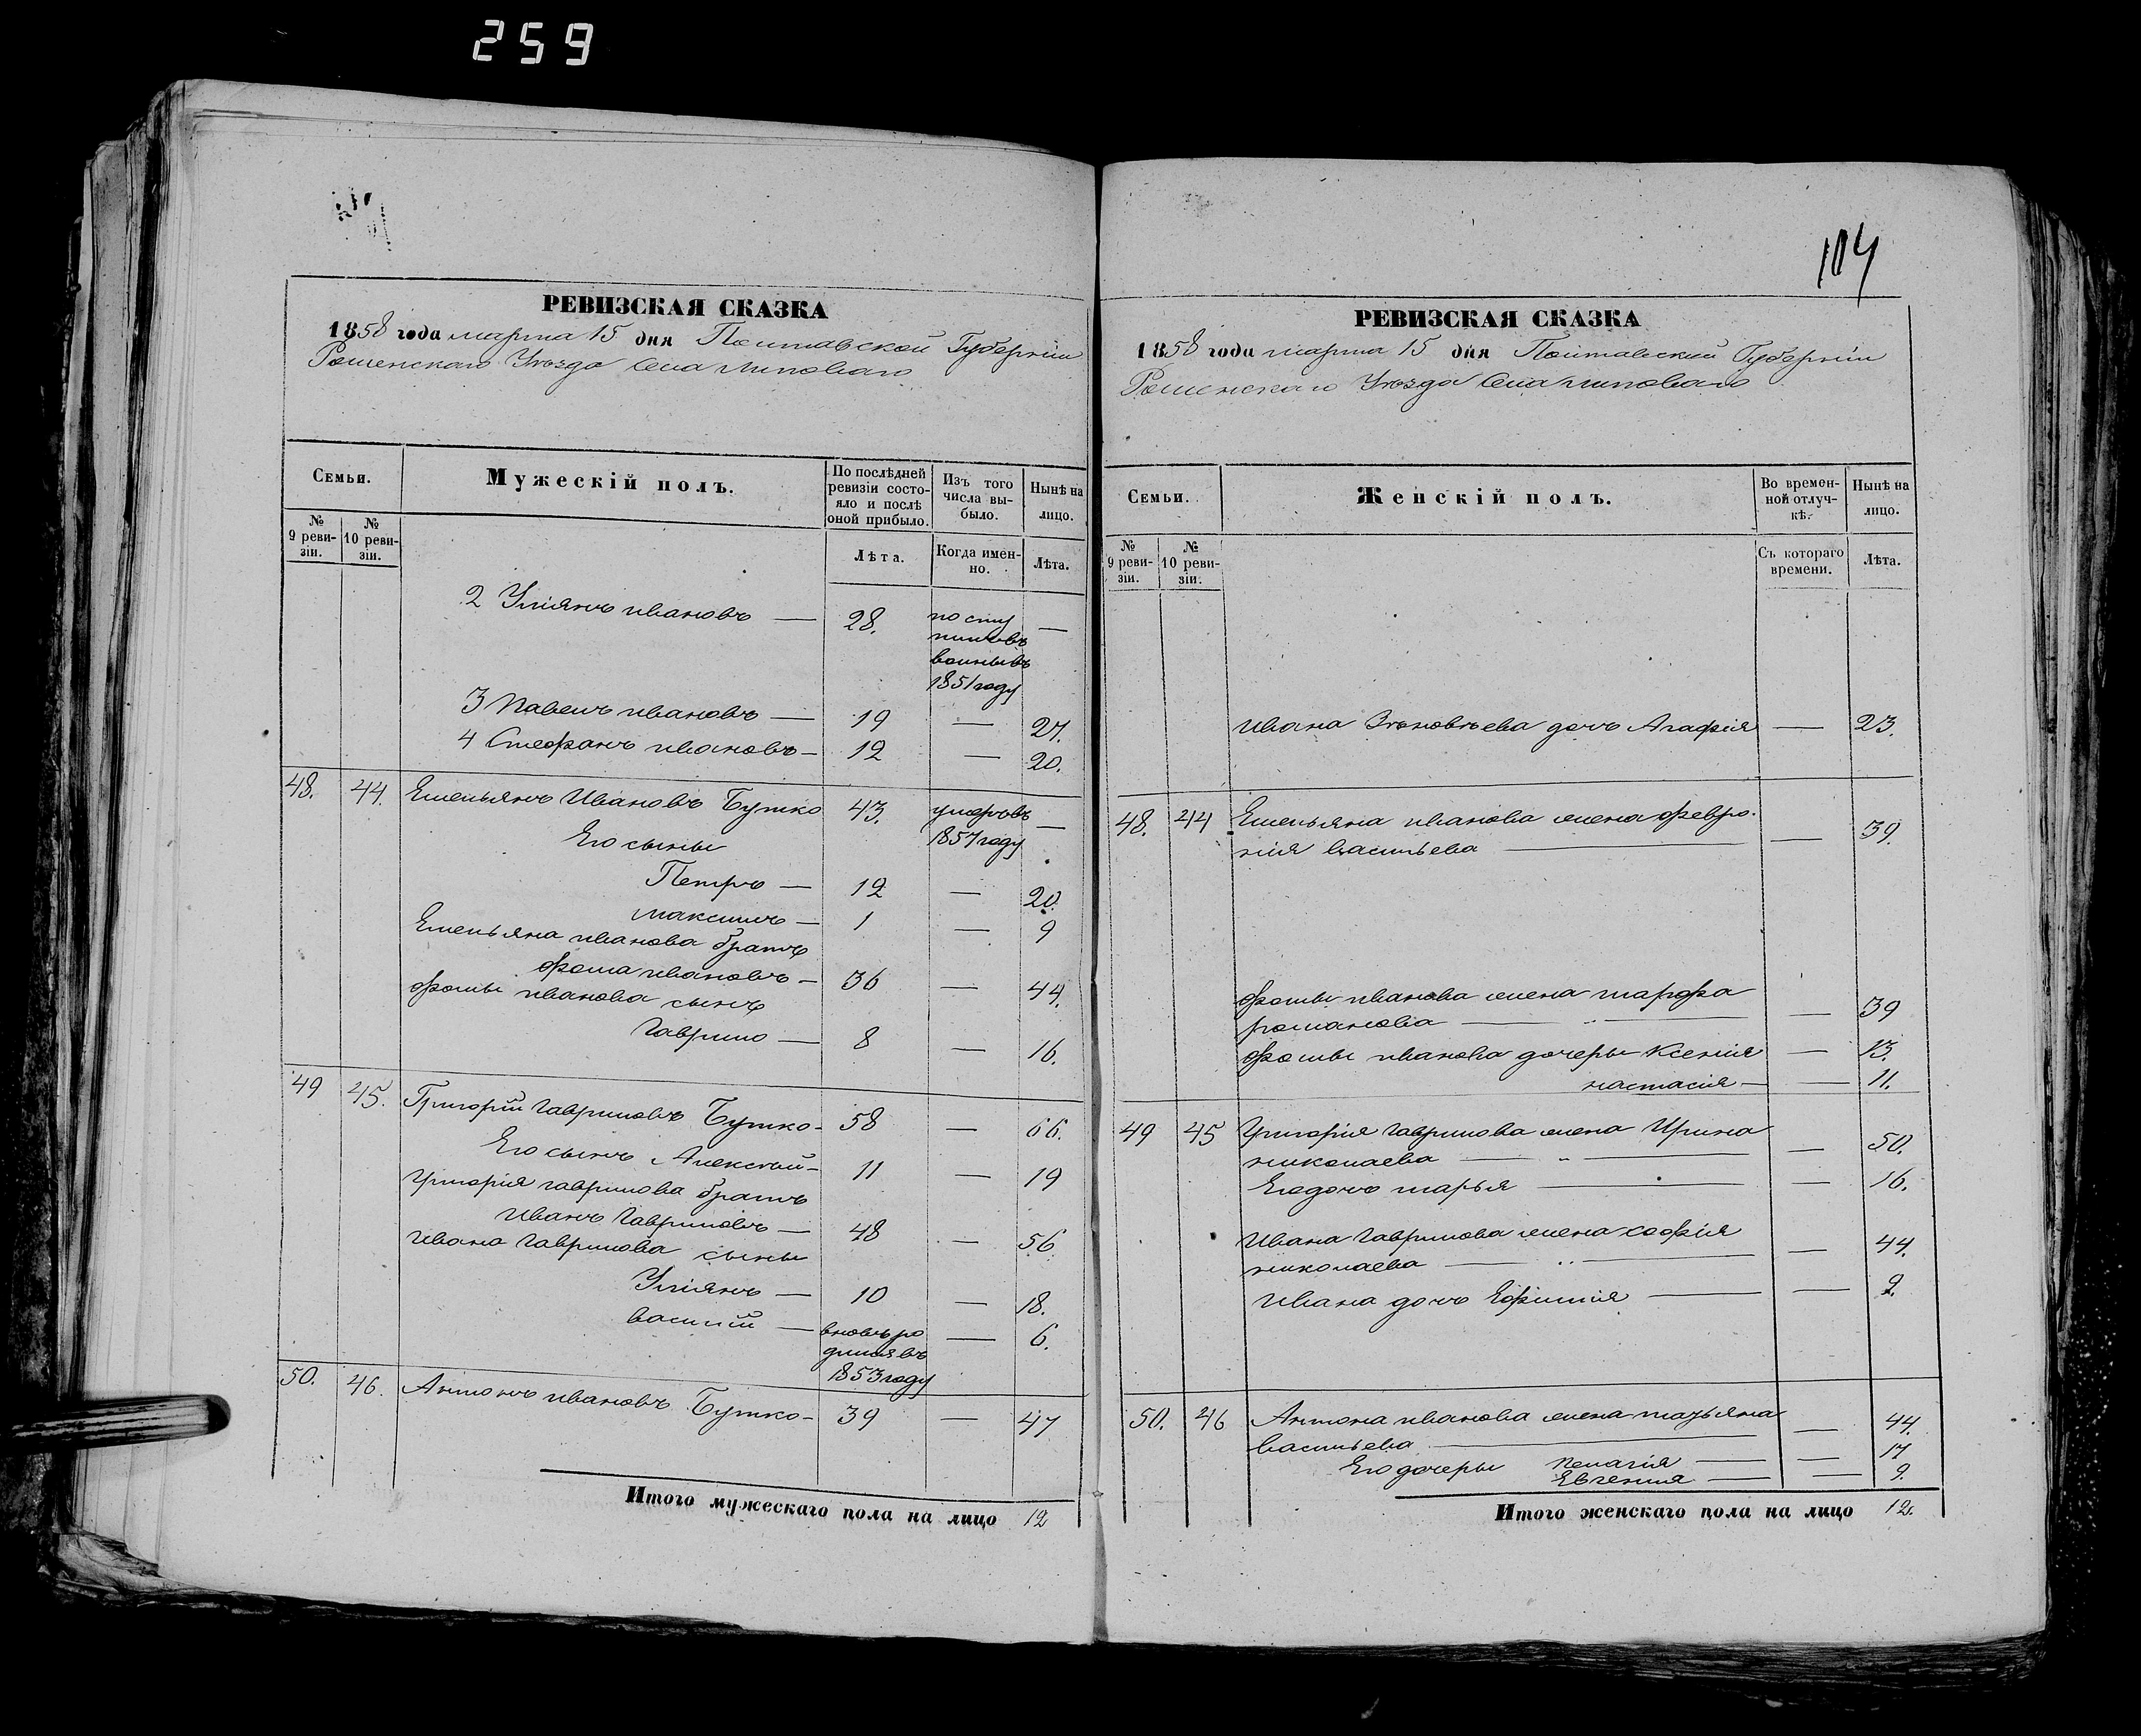 259
РЕВИЗСКАЯ СКАЗКА
1858 года марта 15 дня Полтавской Губерніи
Роменскаго Уѣзда Села Липоваго
Семьи.
Мужескій полъ.
По послѣдней ревизіи состо-
яло и послѣ
оной прибыло.
Изъ того
числа вы-
было.
Нынѣ на
лицо.
№
9 реви-
зіи.
№
10 реви-
зіи.
Лѣта.
Когда имен-
но.
Лѣта.
2 Уліянъ ивановъ — 28. посту —
пилъ въ
военные въ
1851 году
3 Павелъ ивановъ — 19 — 27.
4 Стефанъ ивановъ — 12 — 20.
48. 44. Емельянъ Ивановъ Бутко 43. умеръ въ —
1857 году
Его сыны
Петръ — 12 — 20.
максимъ — 1 — 9
Емельяна иванова братъ
фома ивановъ — 36 — 44.
фомы иванова сынъ
Гаврило — 8 — 16.
49 45. Григорій Гавриловъ Бутко - 58 — 66.
Его сынъ Алексѣй - 11 — 19
григорія гаврилова братъ
Иванъ Гавриловъ — 48 — 56
ивана Гаврилова сыны
Уліянъ — 10 — 18.
василій — вновь ро — 6.
дился въ
1853 году
50. 46. Антонъ ивановъ Бутко - 39 — 47
Итого мужескаго пола на лицо 12
104
РЕВИЗСКАЯ СКАЗКА
1858 года марта 15 дня Полтавской Губерніи
Роменскаго Уѣзда Села липоваго
Семьи.
Женскій полъ.
Во времен-
ной отлуч-
кѣ.
Нынѣ на
лицо.
№
9 реви-
зіи.
№
10 реви-
зіи.
Съ котораго
времени.
Лѣта.
ивана Зѣновѣева дочь Агафія — 23.
48. 44 Емельяна иванова жена февро-
нія васильева — — 39.
фомы иванова жена марфа
романова — — 39
фомы иванова дочеры Ксенія — 13.
настасія — — 11.
49 45 григорія гаврилова жена Ирина
николаева — — 50.
Его дочь марья — — 16.
Ивана Гаврилова жена софія
николаева — — 44.
Ивана дочь Ефимія — — 9.
50. 46 Антона иванова жена татьяна
васильева — — 44.
Его дочеры пелагія — — 17
Евгенія — — 9.
Итого женскаго пола на лицо 12.